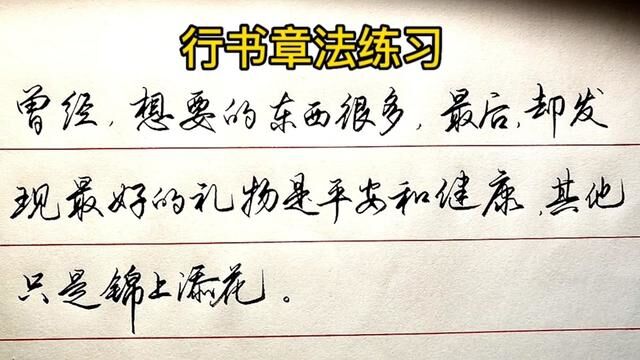 行书章法练习
曾经,想要的东西很多,最后,却发
现最好的礼物是平安和健康,其他
只是锦上添花。